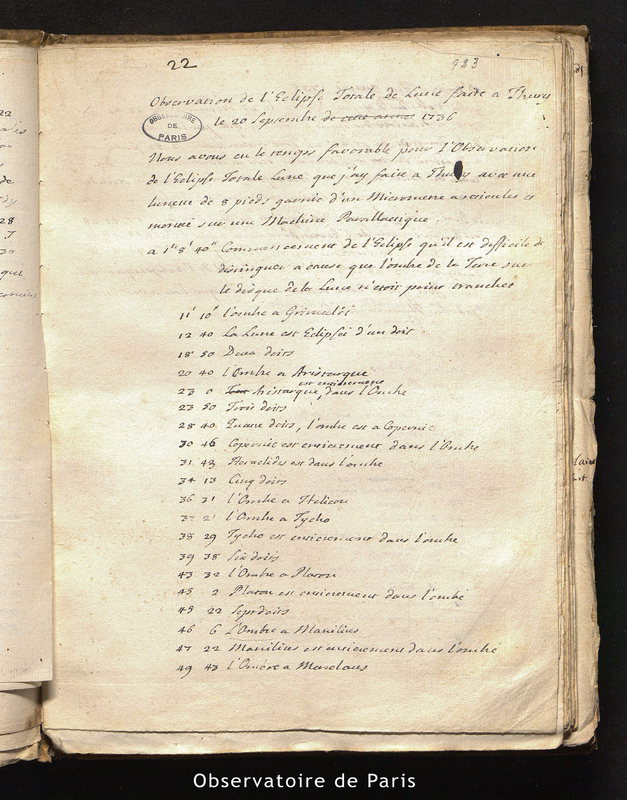 22
923
Observation de l'Eclipse Totale de Lune faite a Thury
le 20 Septembre de cette année 1736
OBSERVATOIRE
DE
PARIS
Nous avons eu le temps favorable pour l'Observation
de l'Eclipse Totale Lune que j'ay faite a Thury avec une
lunette de 8 pieds garnie d'un Micrometre a reticules et
montée sur une Machine Parallactique.
a 1h 8' 40" Commencement de l'Eclipse qu'il est difficile de
distinguer a cause que l'ombre de la Terre sur
le disque de la Lune n'etoit point tranchée
11' 10" l'ombre a Grimaldi
12 40 La Lune est Eclipsée d'un doit
18 50 Deux doits
20 40 l'Ombre a Aristarque
est entierement
23 0 Aristarque, dans l'Ombre
23 50 Trois doits
28 40 Quatre doits, l'ombre est a Copernic
30 46 Copernic est entierement dans l'Ombre
31 43 Heraclides est dans l'ombre
34 13 Cinq doits
36 31 l'Ombre a Helicon
37 21 l'Ombre a Tycho
38 29 Tycho est entierement dans l'ombre
39 38 Six doits
43 32 l'Ombre a Platon
45 2 Platon est entierement dans l'ombre
45 22 Sept doits
46 6 L'Ombre a Manilius
47 22 Manilius est entierement dans l'ombre
49 43 l'Ombre a Menelaus
Observatoire de Paris